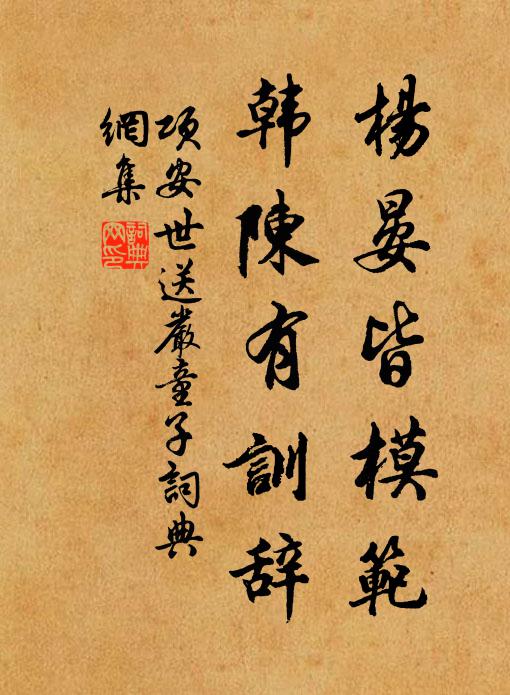 楊晏皆模範
韓陳有訓辞
項安世送嚴童子詞典
網集
詞典
网印